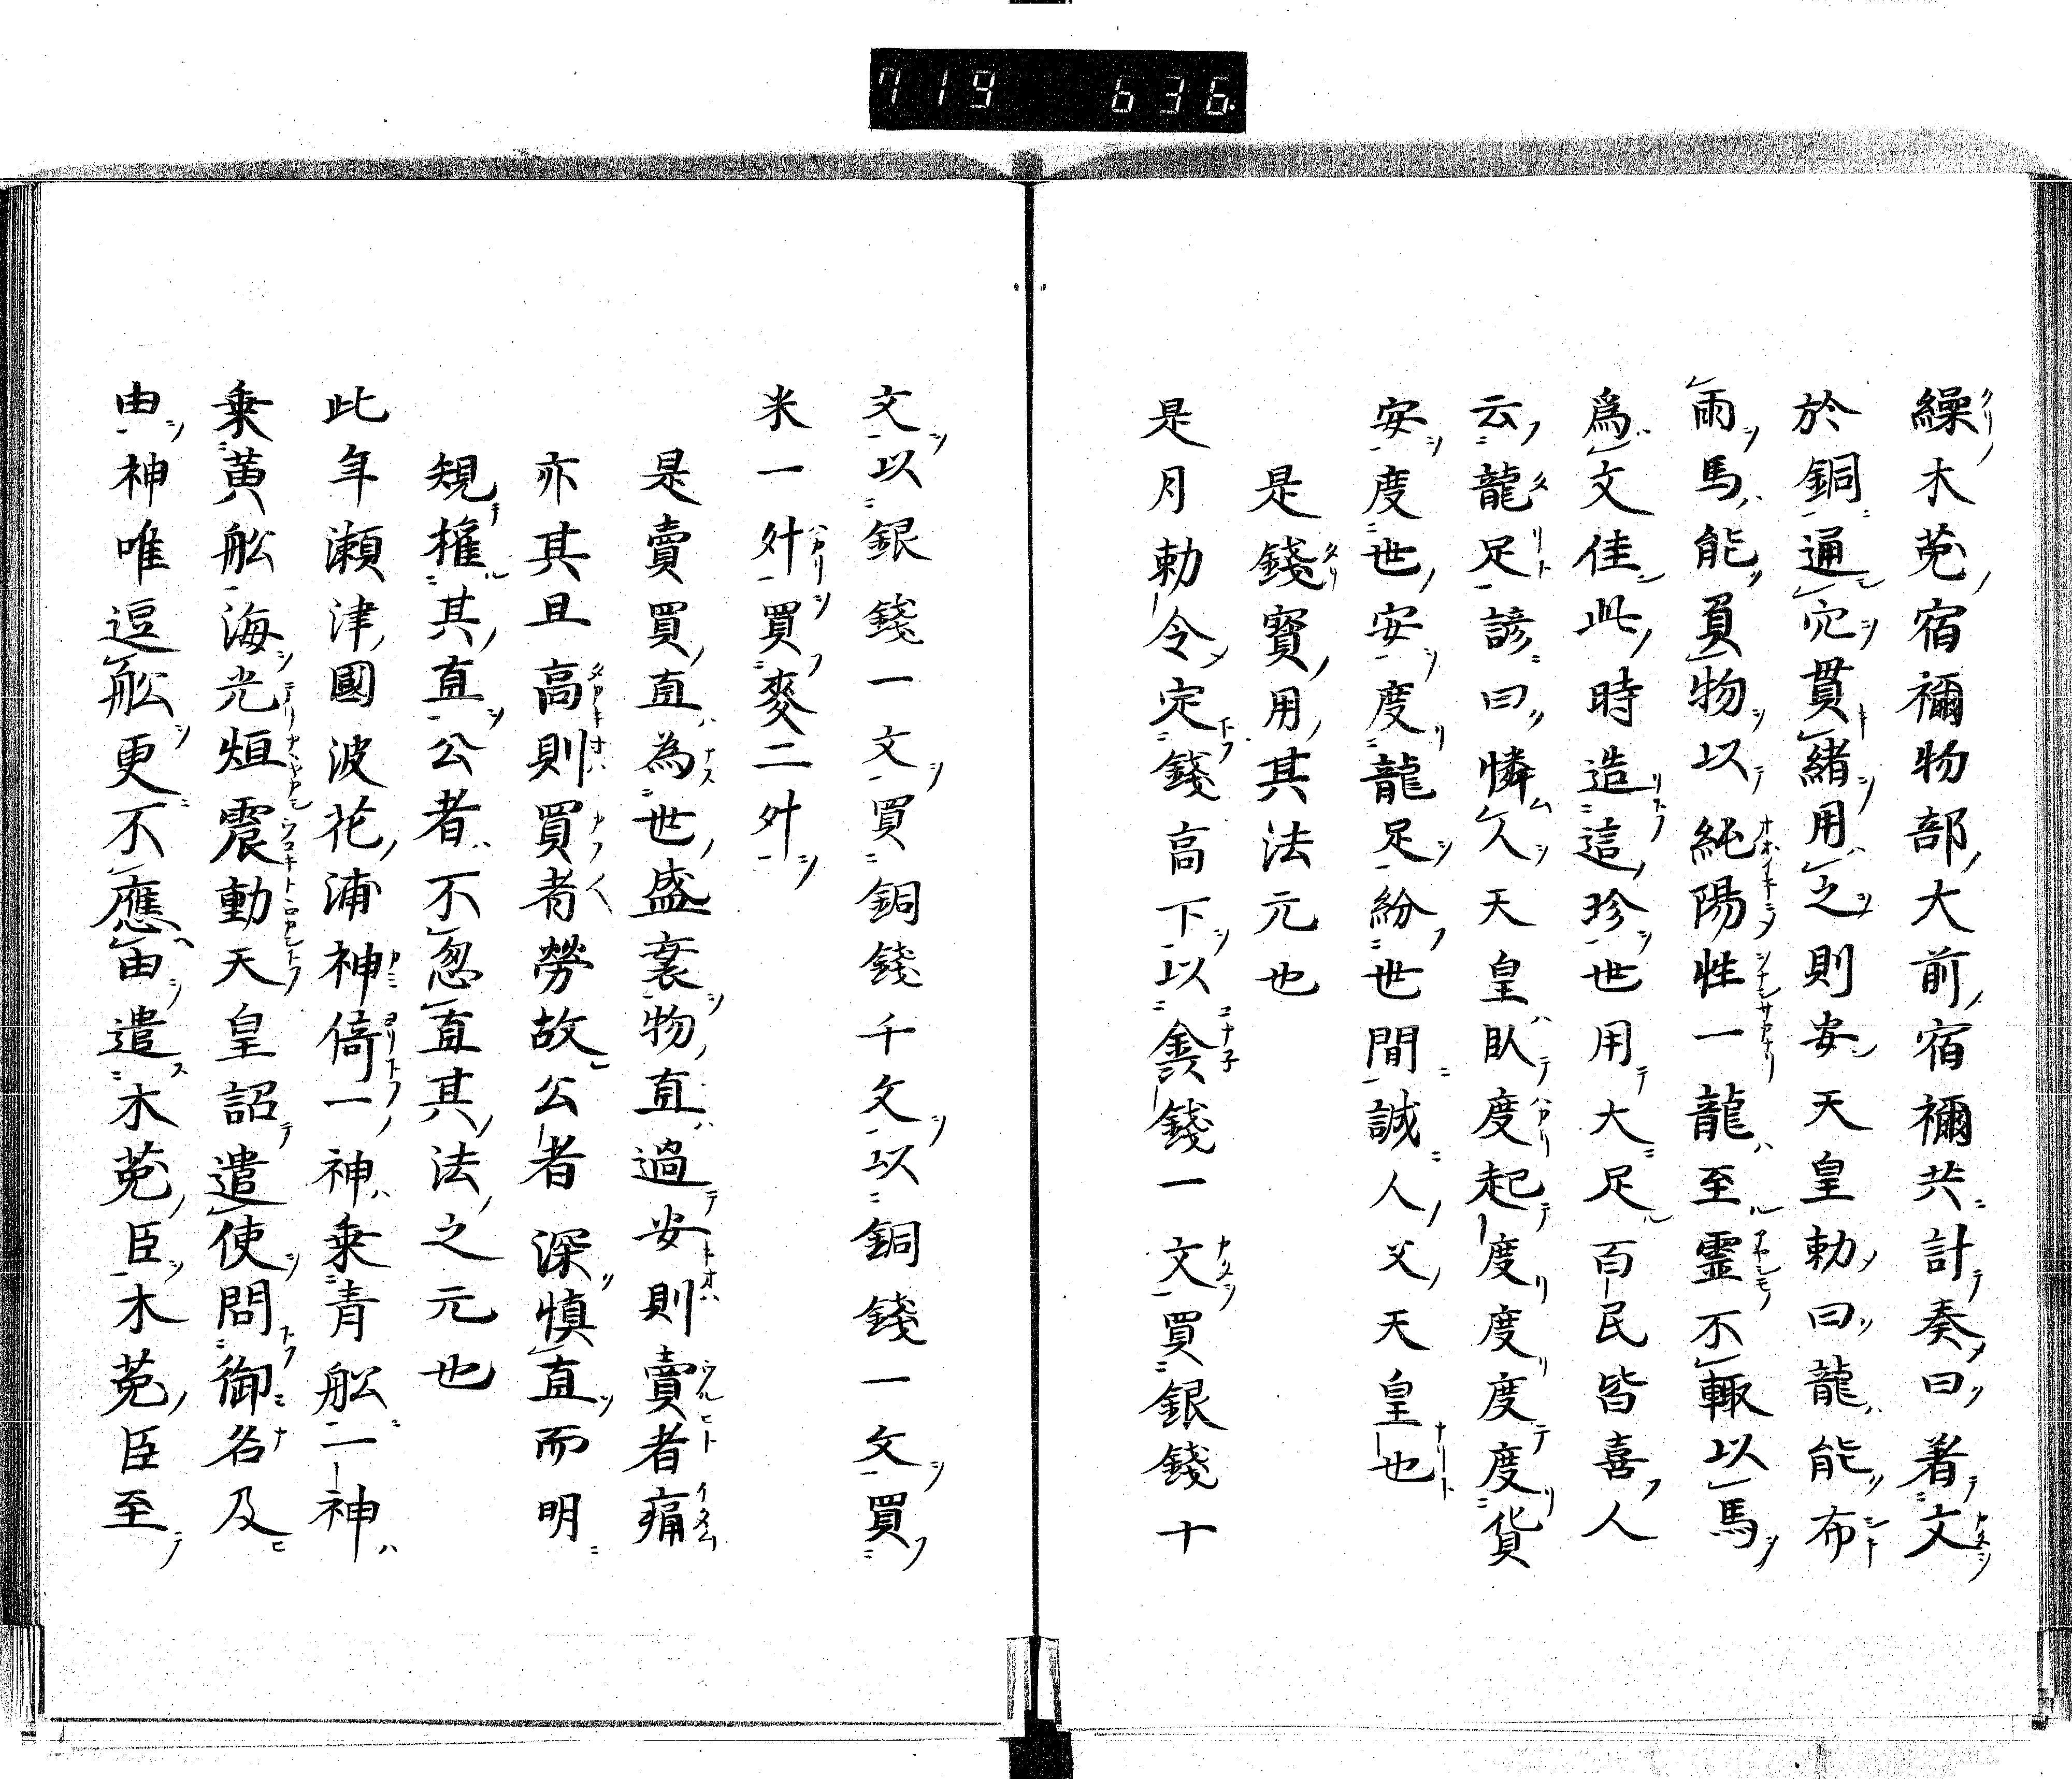 719 636.
繰木菟宿禰物部大前宿禰共計奏曰著文
於銅通穴貫緒用之則安天皇勅曰龍能布
雨馬能負物以純陽性一龍至霊不輙以馬
爲文佳此時造這珍世用大足百民皆喜人
云龍足諺曰憐久天皇臥度起度度度度貨
安度世安度龍足紛世間誠人父天皇也
是錢寳用其法元也
是月勅令定錢高下以金錢一文買銀錢十
文以銀錢一文買銅錢千文以銅錢一文買
米一升買麥二升
是賣買直為世盛衰物直過安則賣者痛
亦其且高則買者勞故公者深慎直而明
規権其直公者不忽直其法之元也
此年瀬津國波花浦神倚一神乗青舩二神
乗黄舩海光烜震動天皇詔遣使問御名及
由神唯逗舩更不應由遣木菟臣木菟臣至